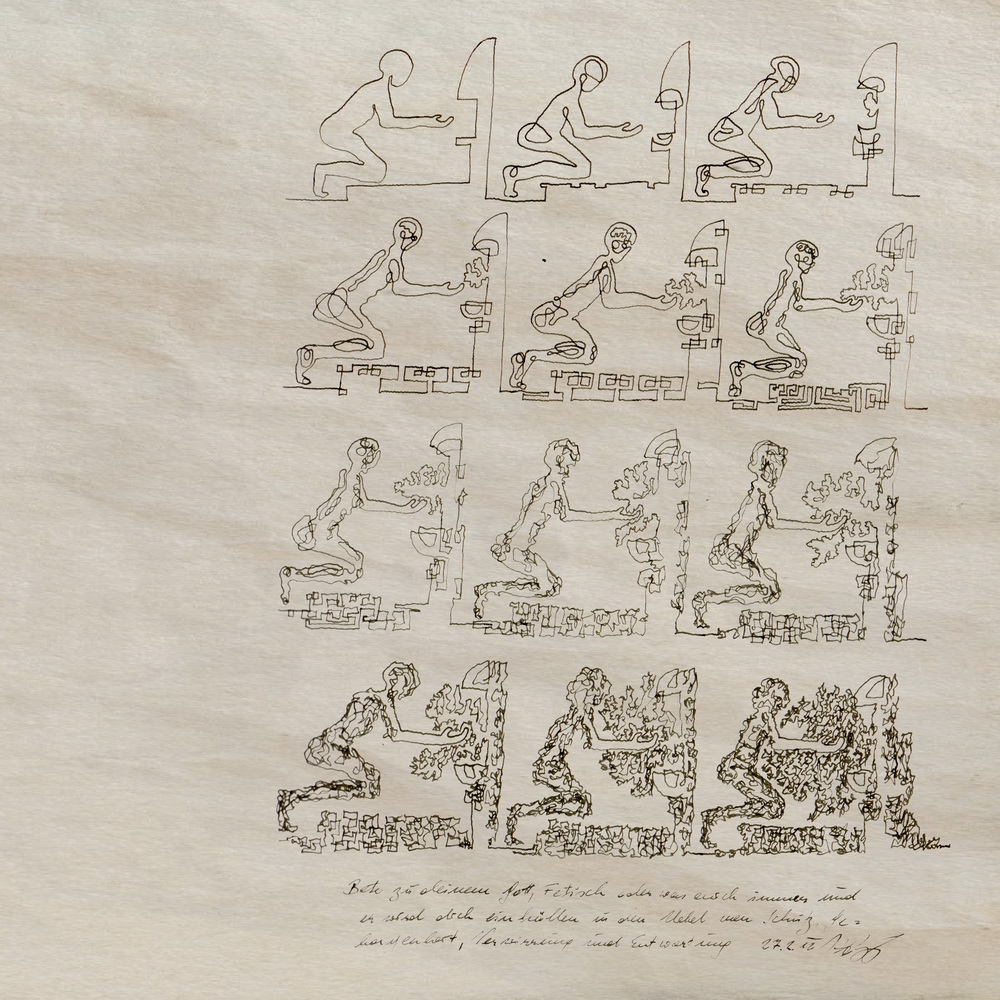 Bete zu deinem Gott, Fetisch oder was auch immer und
er wird dich einhüllen in den Nebel von Schutz, Ge=
borgenheit, Verwirrung und Entwertung 27.2.12